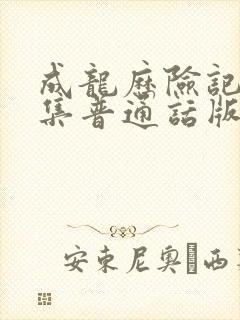 成龍歷險記
集普通話版
安東尼奧·西